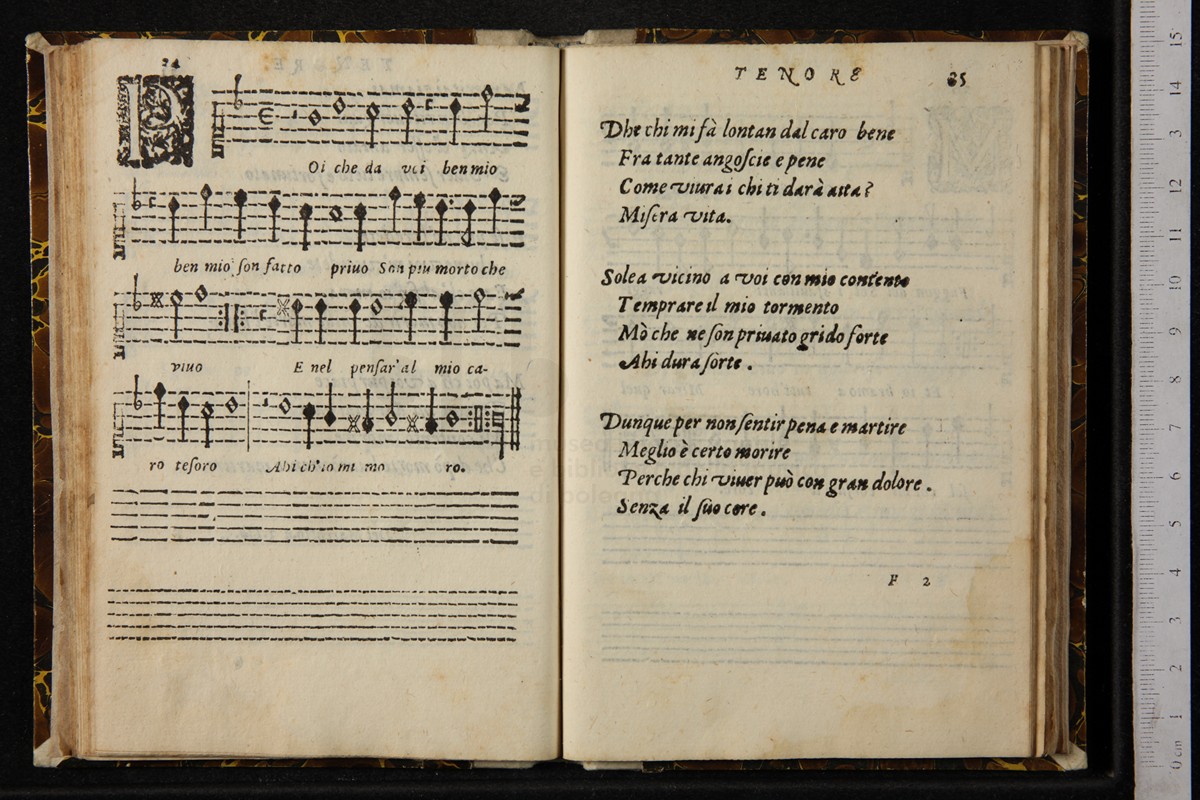 24
P
Oi che da voi ben mio
ben mio son fatto priuo Son piu morto che
viuo E nel pensar' al mio ca-
ro tesoro Ahi ch'io mi mo ro.
TENORE
25
Dhe chi mi fà lontan dal caro bene
Fra tante angoscie e pene
Come viurai chi ti darà aita?
Misera vita.
Solea vicino a voi con mio contento
Temprare il mio tormento
Mò che ne son priuato grido forte
Ahi dura sorte.
Dunque per non sentir pena e martire
Meglio è certo morire
Perche chi viuer può con gran dolore.
Senza il suo core.
F 2